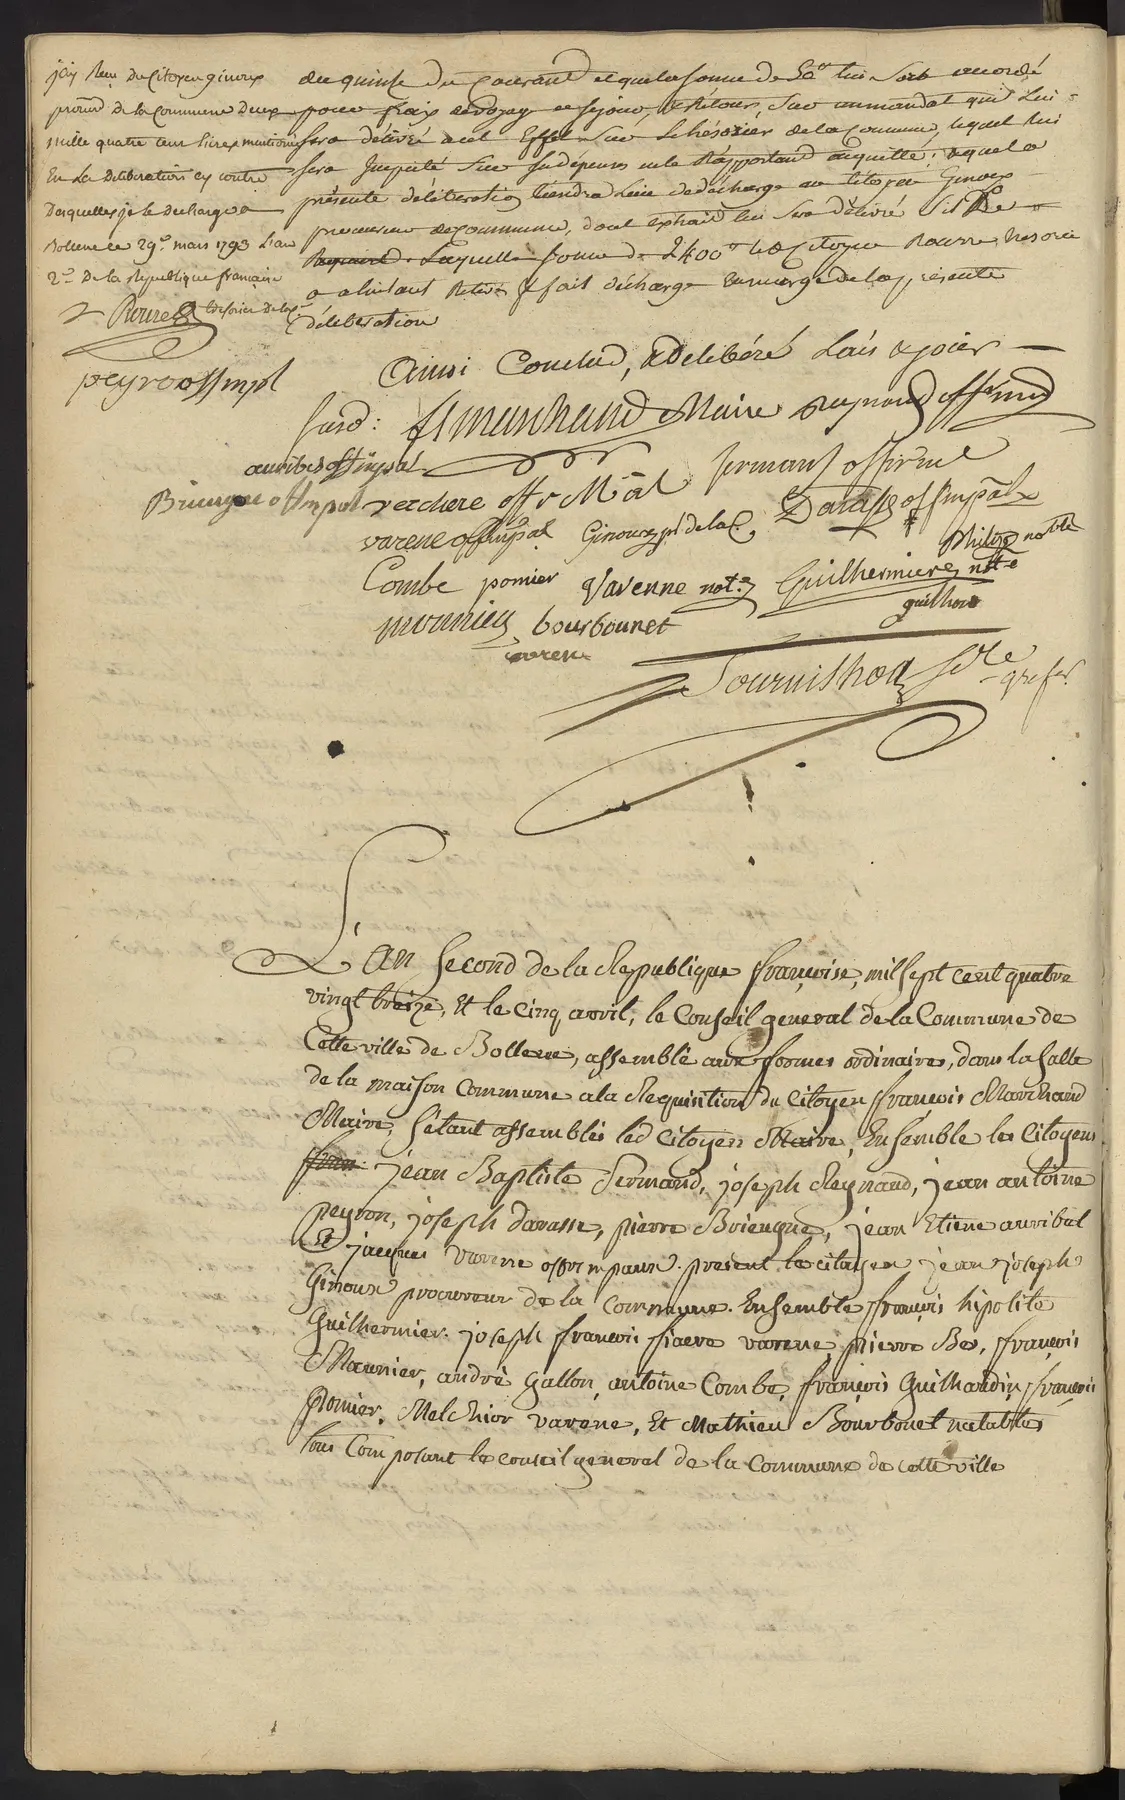 j'ay Recu Du Citoyen ginoux
procur.r De la Commune Deux
mille quatre cent livres mentioné
En La Deliberation cy contre
Desquelles je le decharge a
Bollene ce 29e mars 1793 L'an
2e De la Republique francaise
Roure tresorier de la C.
peyron off mpl
du quinse du Courant et que la somme de 50# lui soit accordé
pour fraix de voyage et sejour, & Retour, sur un mandat qui Lui
sera délivré a cet Effet sur le thésorier de la Commune, lequel lui
sera Imputé sur ses depenses en le Rapportant acquitté; auquel a
présente déliberation tiendra Lieu de décharge au Citoyen Ginoux
procureur de Commune, dont extrait lui sera délivré s'il le
Requiert. Laquelle somme de 2400# led Citoyen Rourre thesorier
a a l'instant Retiré & fait décharge en marge de la présente
déliberation
Ainsi Conclud, & Delibéré Lais an & jour
susd:
f marchand Maire Reynaud off mp
auribes off mpal
fermand offi mpl
Briengue off mpal verchere off M al
Darasse off mpal
varene off mpal Ginoux pr de la C.
Combe pomier Varenne not. Guilhermier notte
guilhon
monnier bourbounet
varene
Tournilhon secre grefer
L'an second de la Republique françoise, mil sept cent quatre
vingt treize, Et le cinq avril, le Conseil general de la Commune de
Cette ville de Bollene, assemblé aux formes ordinaires, dans la salle
de la maison Commune a la Requisition du Citoyen françois Marchand
Maire, s'etant assemblés led Citoyen Maire, Ensemble les Citoyens
fran: jean Baptiste Fermand, joseph Reynaud, jean antoine
peyron, joseph darasse, pierre Briengue, jean Etiene auribal
Et jacques varene off.rs mpaux. présent le citoyen jean joseph
Ginoux procureur de la Commune. Ensemble françois hipolite
Guilhermier. joseph françois fiacre varene, pierre Bes, françois
Maunier, andré Gallon, antoine Combe, françois Guilhaudin, françois
Pomier, Melchior varene, Et Mathieu Bourbouet notables
tous Composant le conseil general de la Commune de cette ville